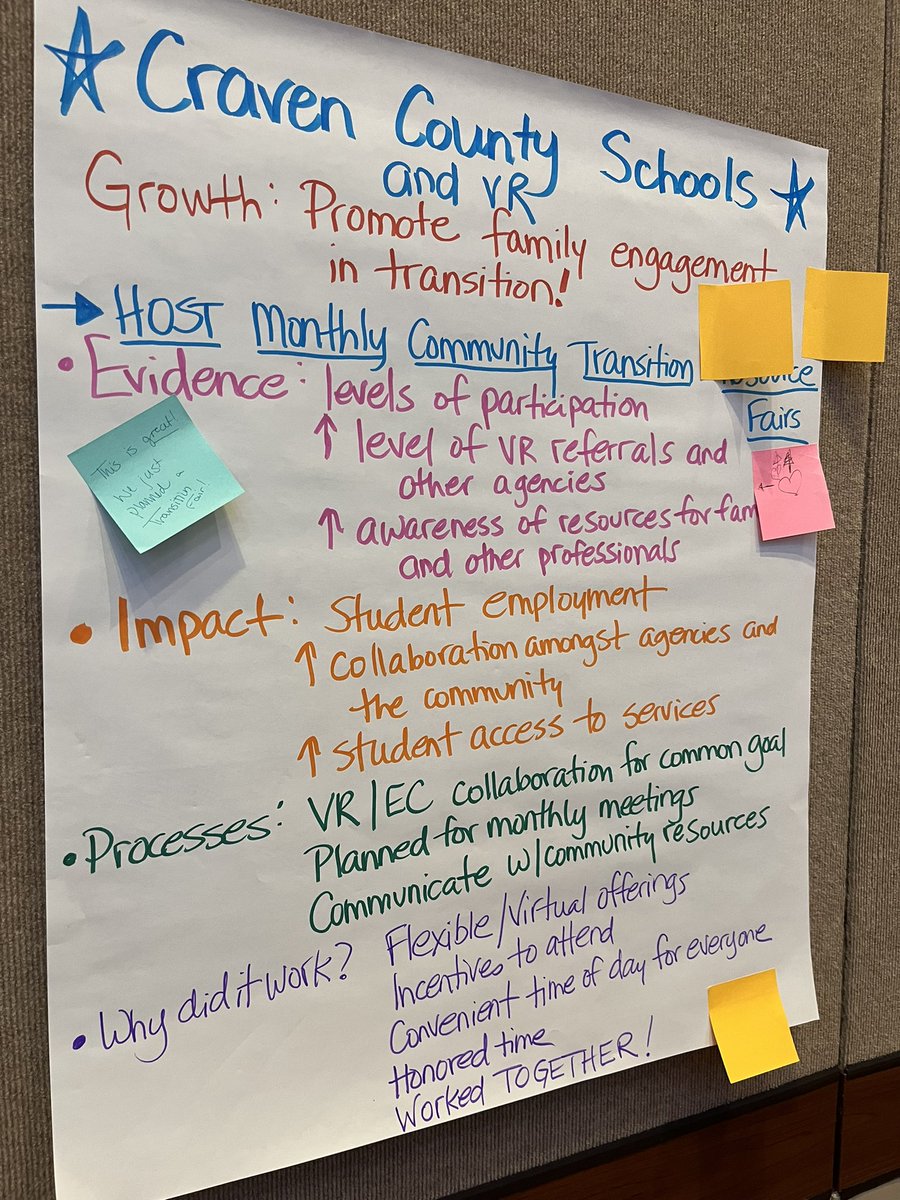 Craven County Schools
and VR
Growth: Promote family engagement
in transition!
→ HOST Monthly Community Transition
Fairs
• Evidence: levels of participation
↑ level of VR referrals and
other agencies
↑ awareness of resources for fam
and other professionals
This is great!
We just
planned a
Transition
Fair!
• Impact: Student employment
↑ Collaboration amongst agencies and
the community
↑ Student access to services
• Processes: VR/EC collaboration for common goal
Planned for monthly meetings
Communicate w/community resources
• Why did it work? Flexible/Virtual offerings
Incentives to attend
Convenient time of day for everyone
Honored time
Worked TOGETHER!